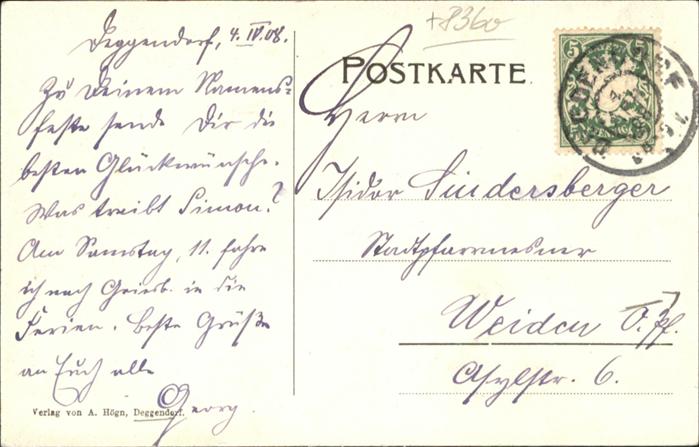 +8360
Deggendorf, 4. IV. 08.
Zu Deinem Namens-
feste sende Dir die
besten Glückwünsche.
Was treibt Simon?
Am Samstag, 11. fahre
ich nach Griesb. in die
Ferien. Beste Grüße
an Euch alle
Georg.
Verlag von A. Högn, Deggendorf.
POSTKARTE
Herrn
Isidor Sindersberger
Stadtpfarrmesner
Weiden O.Pf.
Asylstr. 6.
5